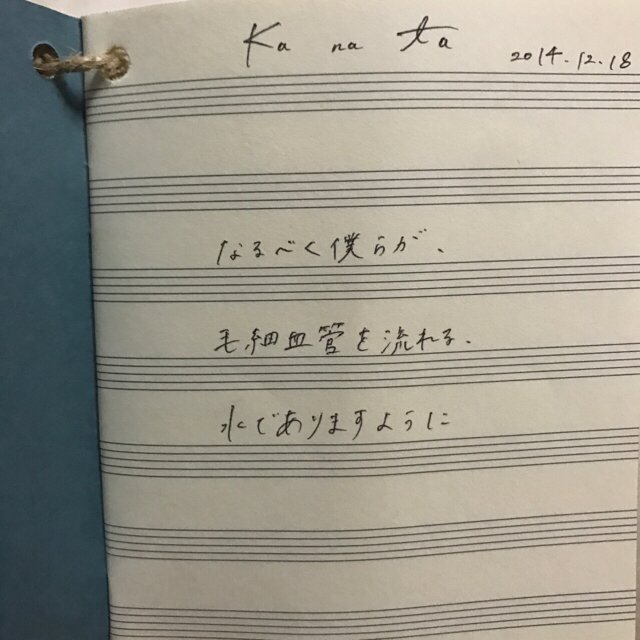 Ka na ta
2014.12.18
なるべく僕らが、
毛細血管を流れる、
水でありますように